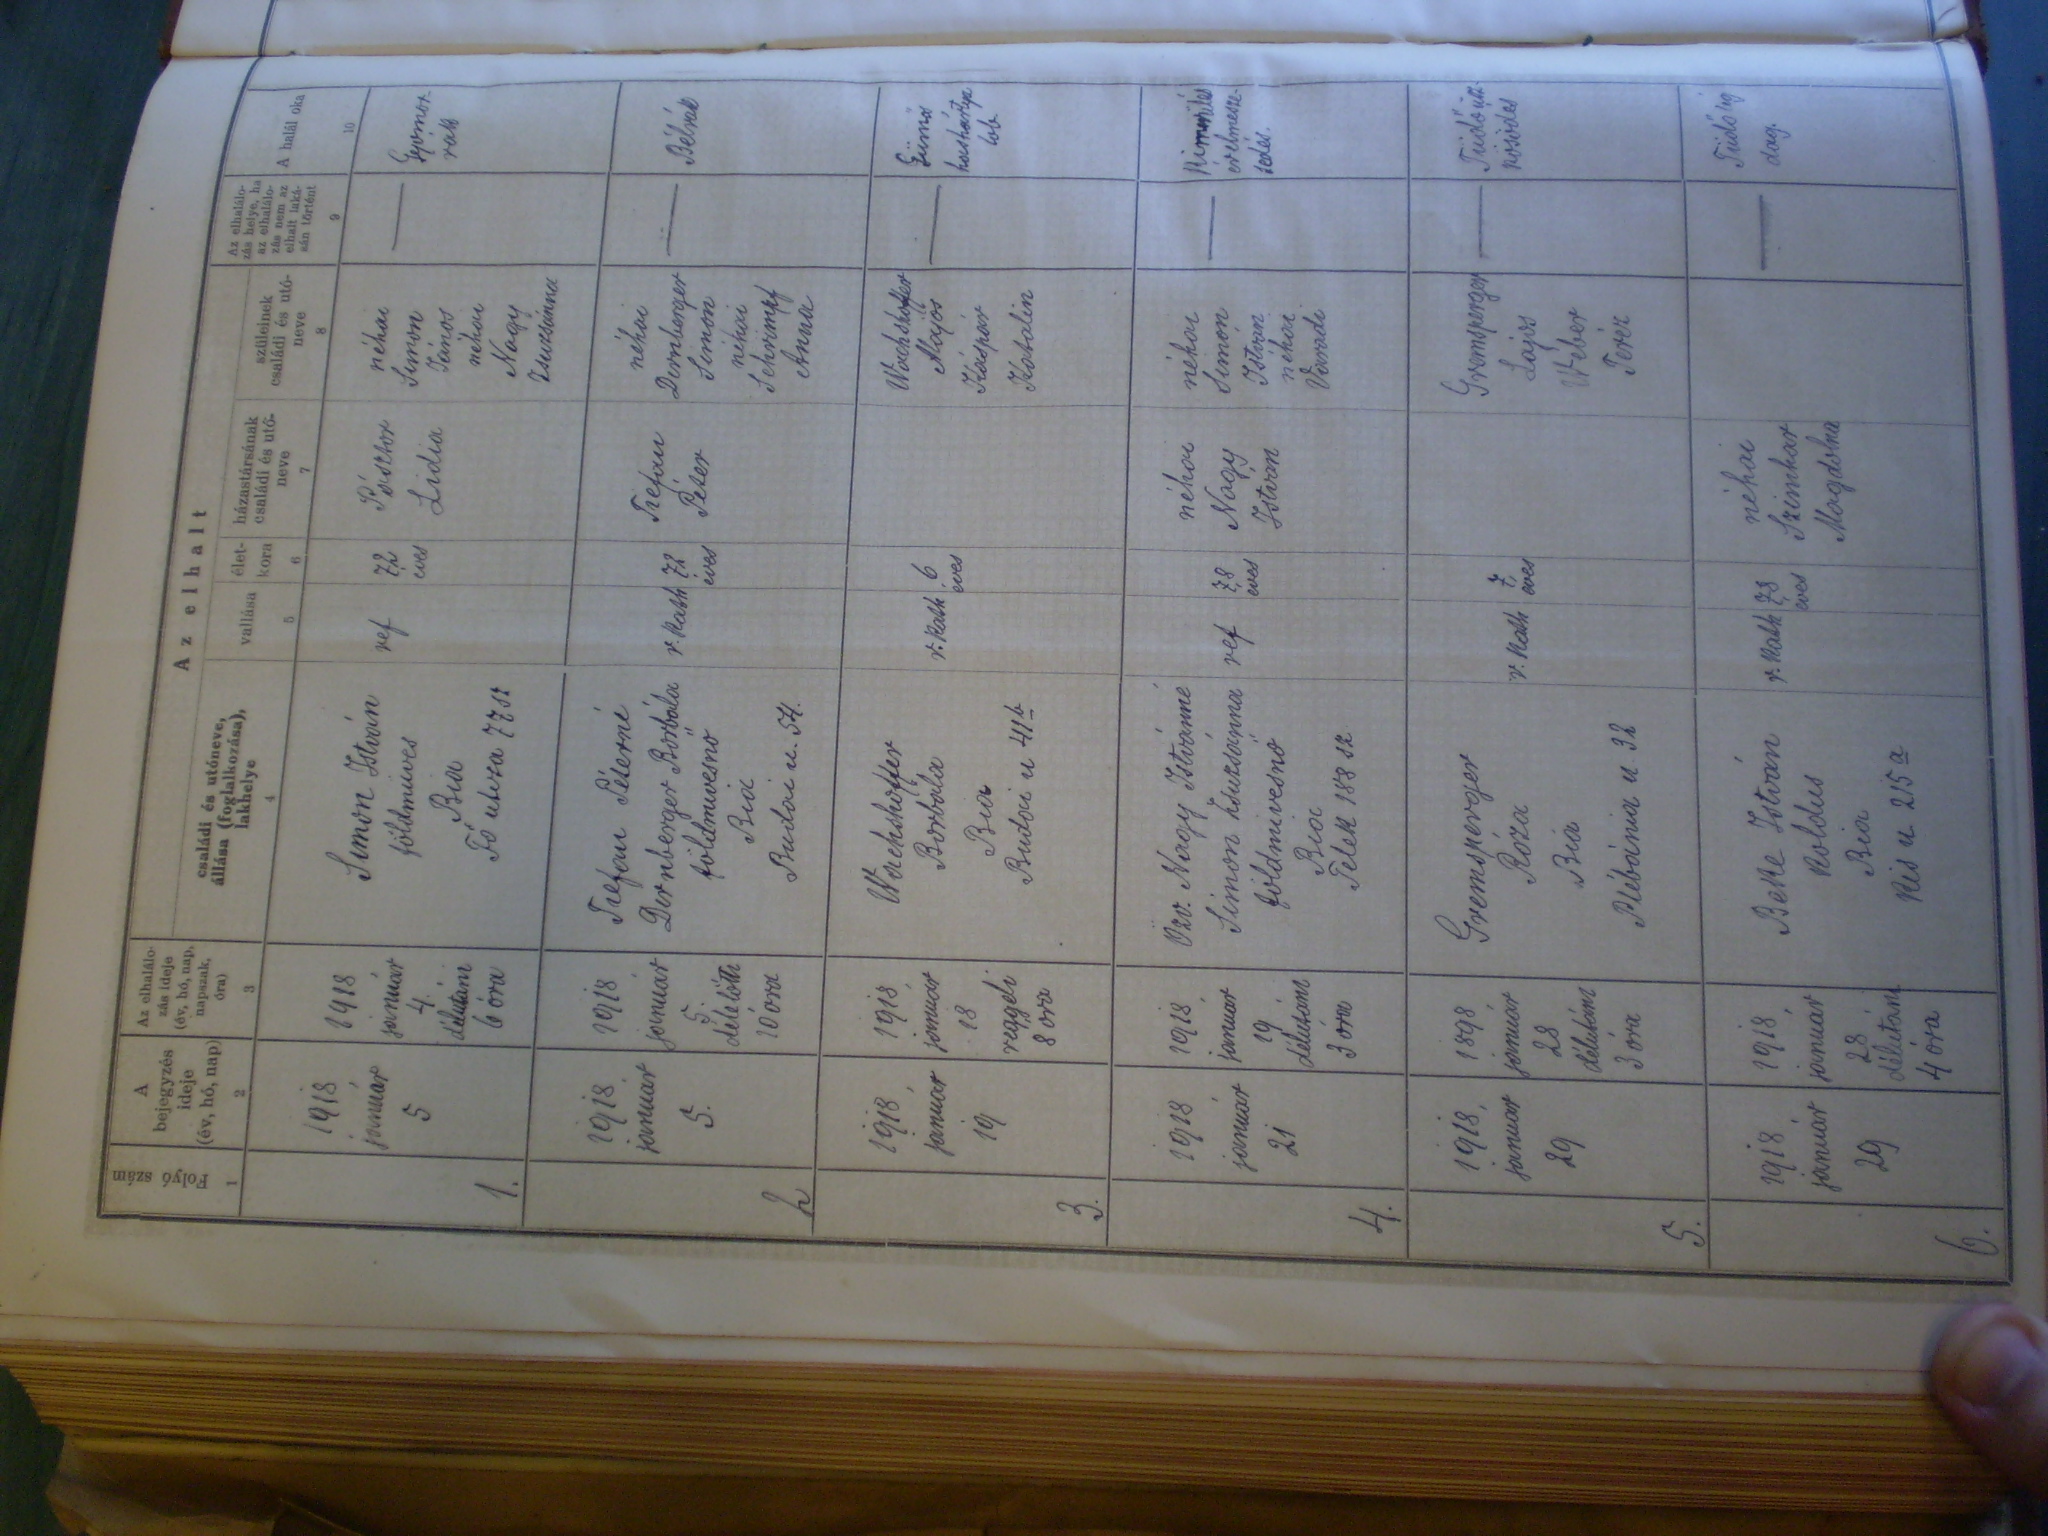 Folyó szám
A bejegyzés ideje (év, hó, nap)
Az elhalálo-
zás ideje
(év, hó, nap,
napszak,
óra)
Az elhalt
családi és utóneve,
állása (foglalkozása),
lakhelye
vallása
élet-
kora
házastársának
családi és utó-
neve
szüleinek
családi és utó-
neve
Az elhalálo-
zás helye, ha
az elhalálo-
zás nem az
elhalt laká-
sán történt
A halál oka
1
2
3
4
5
6
7
8
9
10
1.
1918
január
5
1918
január
4.
délután
6 óra
Simon István
földmíves
Bia
Fő utcza 77 sz
ref
72
éves
Pásztor
Lidia
néhai
Simon
János
néhai
Nagy
Zsuzsánna
—
Gyomor
rák
2
1918
január
5.
1918
január
5.
délelőtt
10 óra
Trefan Péterné
Dernberger Borbála
földmívesnő
Bia
Budai u. 54.
r. kath
72
éves
Trefan
Péter
néhai
Dernberger
Simon
néhai
Schrimpf
Anna
—
Bélrák
3.
1918
január
19
1918
január
18
reggeli
8 óra
Wachshoffer
Borbála
Bia
Budai u 41 b
r. kath
6
éves
Wachshoffer
Alajos
Gáspár
Katalin
—
Gümős
hashártya
lob
4.
1918
január
21
1918
január
19
délutáni
3 óra
Özv. Nagy Istvánné
Simon Zsuzsánna
földmívesnő
Bia
Telek 188 sz
ref
78
éves
néhai
Nagy
István
néhai
Simon
István
néhai
Varadi
—
érelmesze-
sedés.
5.
1918
január
29
1898
január
28
délutáni
3 óra
Gremsperger
Róza
Bia
Plébánia u. 32
r. kath
7
éves
Gremsperger
Lajos
Wéber
Teréz
—
6.
1918
január
29
1918
január
28
délután
4 óra
Beke István
koldus
Bia
Kis u 215 a
r. kath
78
éves
néhai
Szimhar
Magdolna
—
Tüdőlég
dag.